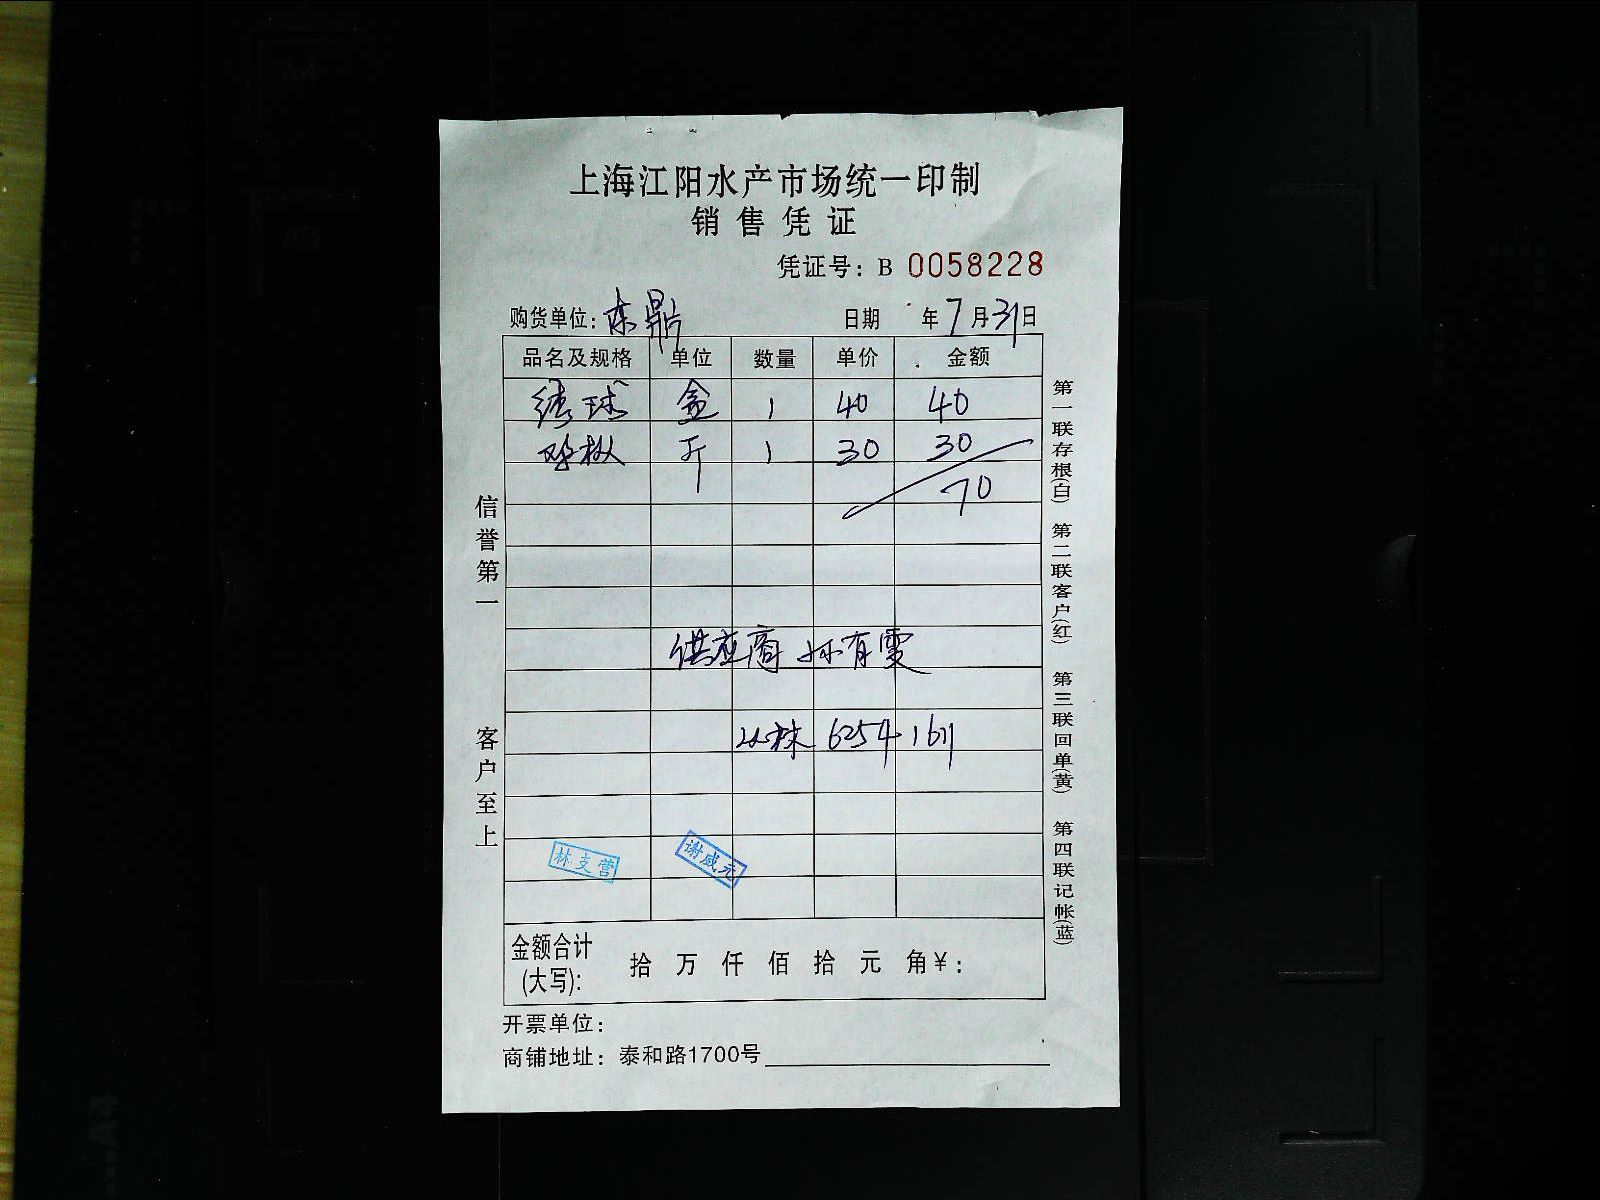 上海江阳水产市场统一印制
销售凭证
凭证号：B 0058228
购货单位：东鼎 日期 年7月31日
品名及规格 单位 数量 单价 金额
绣球 盒 1 40 40
鸡枞 斤 1 30 30
70
供应商 孙有雯
6254 1611
林支营 谢威元
金额合计(大写)： 拾 万 仟 佰 拾 元 角￥：
开票单位：
商铺地址：泰和路1700号
信誉第一
客户至上
第一联存根(白) 第二联客户(红) 第三联回单(黄) 第四联记帐(蓝)